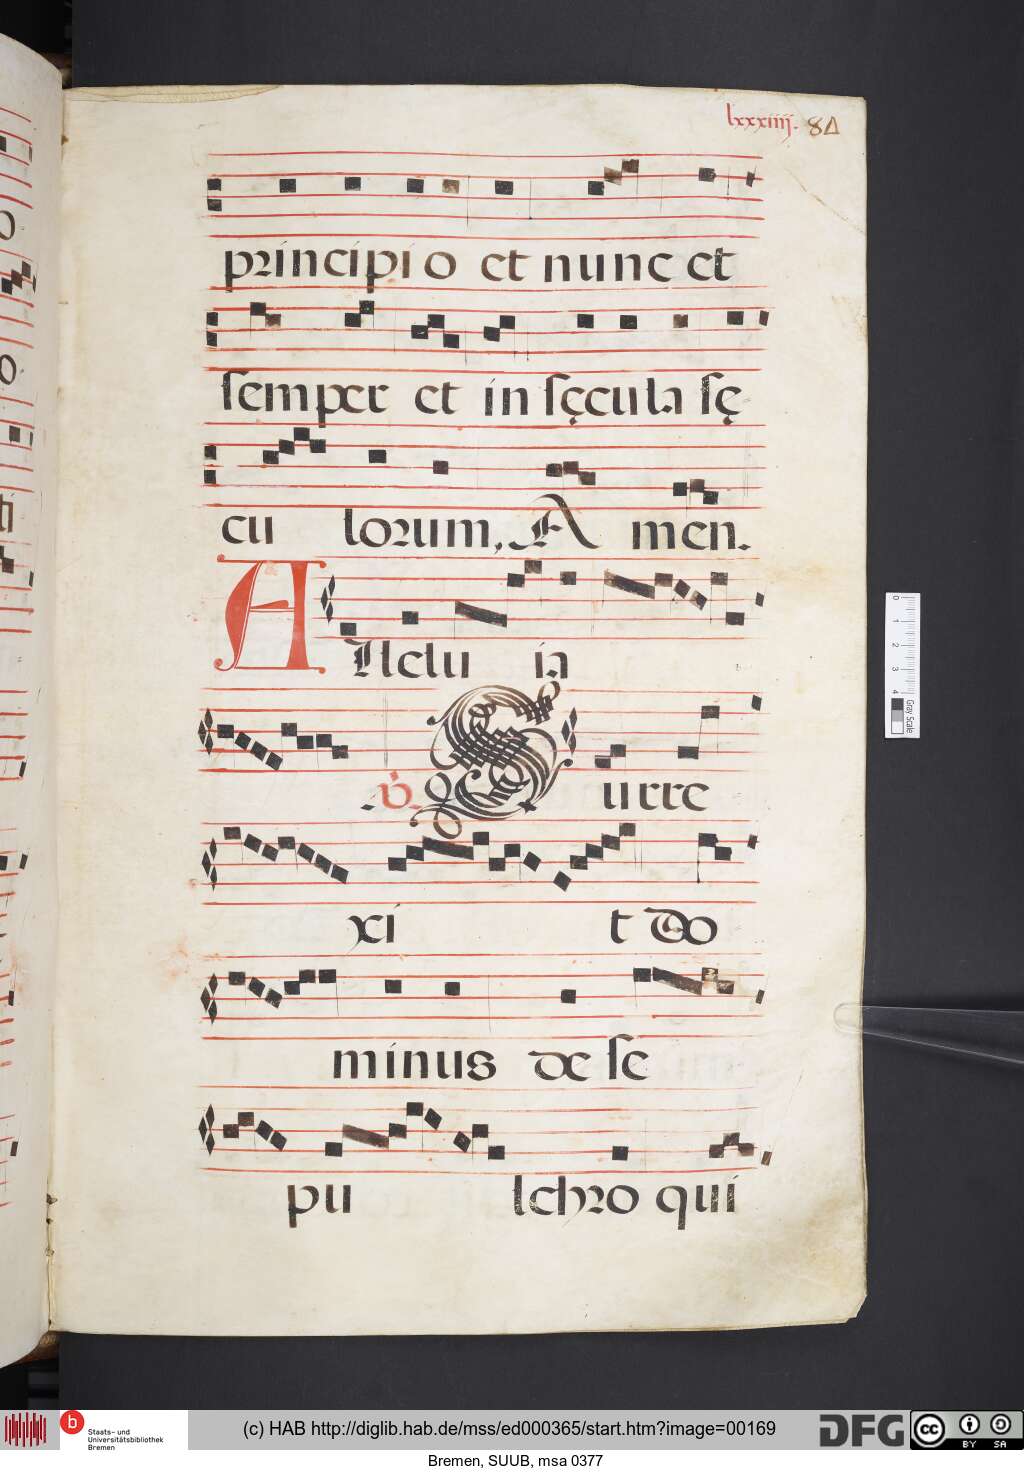 lxxxiiij. 84
principio et nunc et
semper et in sęcula sę
cu lorum, A men.
Allelu ia
℣. Surre
xi t do
minus de se
pu lchro qui
0 1 2 3 4 Gray Scale
b Staats- und
Universitätsbibliothek
Bremen
(c) HAB http://diglib.hab.de/mss/ed000365/start.htm?image=00169
DFG
cc BY SA
Bremen, SUUB, msa 0377